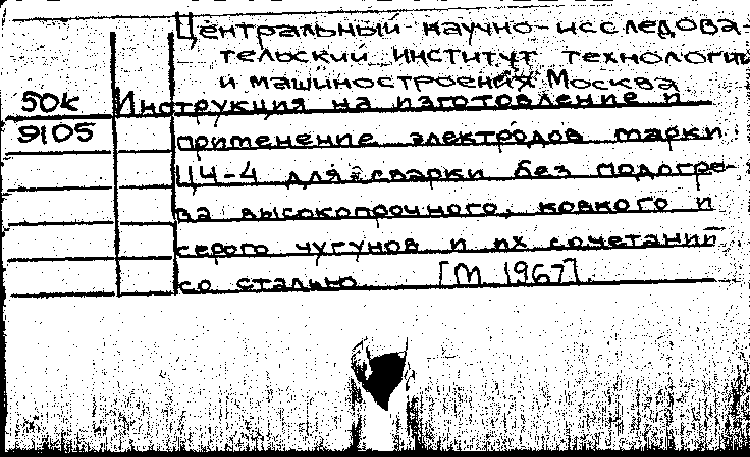 Центральный научно-исследова-
тельский институт технологии
и машиностроения Москва
50к Инструкция на изготовление и
9105 применение электродов марки
ЦЧ-4 для сварки без подогре-
ва высокопрочного, ковкого и
серого чугунов и их сочетаний
со сталью [М 1967].